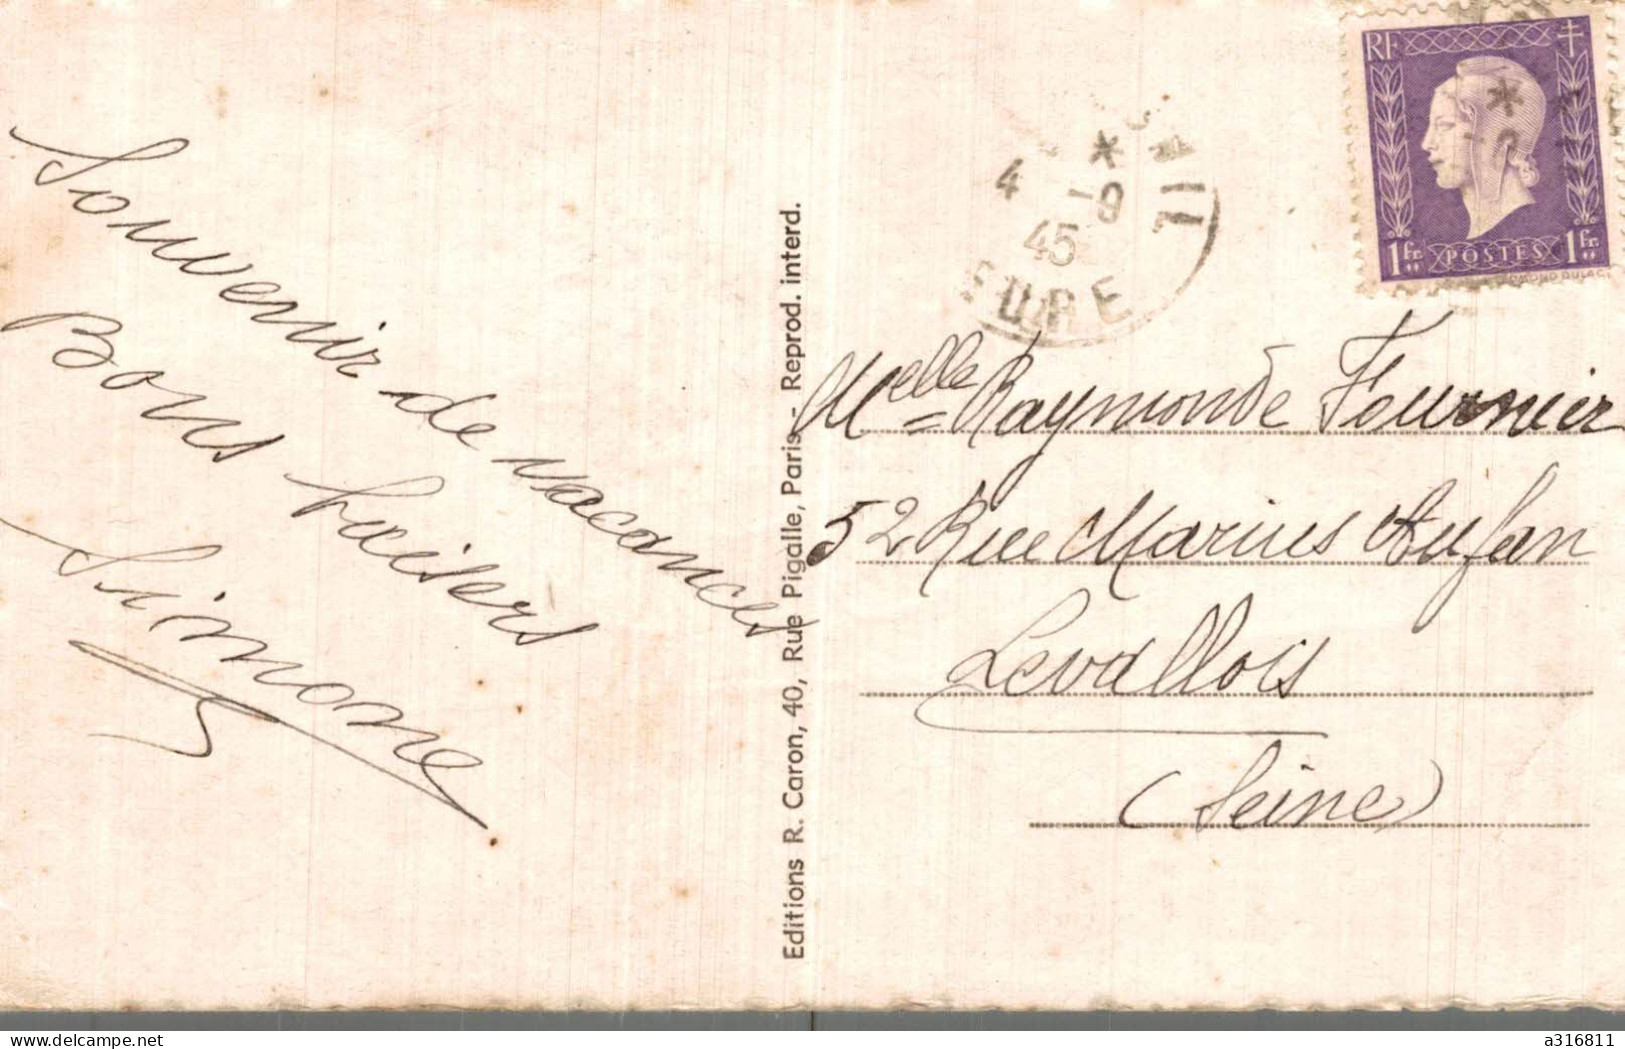 Souvenir de vacances
Bons baisers
Simone
Editions R. Caron, 40, Rue Pigalle, Paris - Reprod. interd.
4 * -9
45
EURE
RF
1fr. POSTES 1fr.
EDMOND DULAC
Melle Raymonde Fournier
52 Rue Marius Aufan
Levallois
(Seine)
delcampe.net
a316811